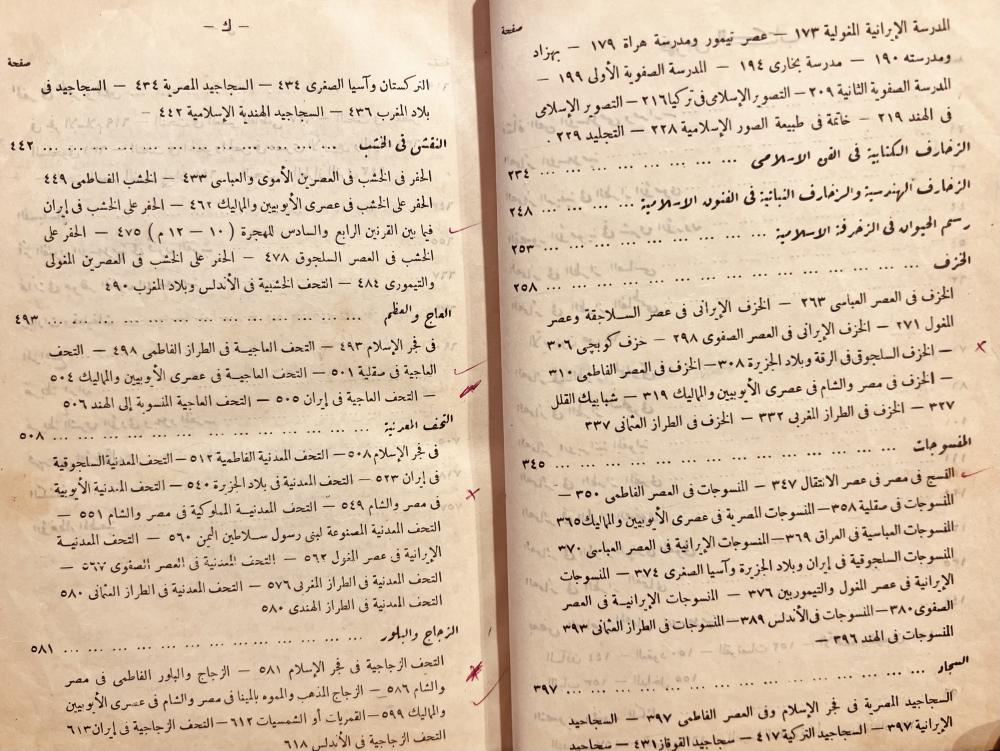 صفحة
المدرسة الإيرانية المغولية ١٧٣ — عصر تيمور ومدرسة هراة ١٧٩ — بهزاد
ومدرسته ١٩٠ — مدرسة بخارى ١٩٤ — المدرسة الصفوية الأولى ١٩٩ —
المدرسة الصفوية الثانية ٢٠٩ — التصوير الإسلامى فى تركيا ٢١٦ — التصوير الإسلامى
فى الهند ٢١٩ — خاتمة فى طبيعة الصور الإسلامية ٢٢٨ — التجليد ٢٢٩ .
الزخارف الكتابية فى الفن الاسلامى ... ... ... ... ... ٢٣٤
الزخارف الهندسية والزخارف النباتية فى الفنون الاسلامية ... ... ... ... ٢٤٨
رسم الحيوان فى الزخرفة الاسلامية ... ... ... ... ... ... ... ٢٥٣
الخزف ... ... ... ... ... ... ... ... ... ... ... ٢٥٨
الخزف فى العصر العباسى ٢٦٣ — الخزف الإيرانى فى عصر السلاجقة وعصر
المغول ٢٧١ — الخزف الإيرانى فى العصر الصفوى ٢٩٨ — خزف كوبچى ٣٠٦
— الخزف السلجوقى فى الرقة وبلاد الجزيرة ٣٠٨ — الخزف فى العصر الفاطمى ٣١٠
— الخزف فى مصر والشام فى عصرى الأيوبيين والمماليك ٣١٩ — شبابيك القلل
٣٢٧ — الخزف فى الطراز المغربى ٣٣٢ — الخزف فى الطراز العثمانى ٣٣٧
المنسوجات ... ... ... ... ... ... ... ... ... ... ٣٤٥
النسج فى مصر فى عصر الانتقال ٣٤٧ — المنسوجات فى العصر الفاطمى ٣٥٠ —
المنسوجات فى صقلية ٣٥٨ — المنسوجات المصرية فى عصرى الأيوبيين والمماليك ٣٦٥
المنسوجات العباسية فى العراق ٣٦٩ — المنسوجات الإيرانية فى العصر العباسى ٣٧٠
المنسوجات السلجوقية فى إيران وبلاد الجزيرة وآسيا الصغرى ٣٧٤ — المنسوجات
الإيرانية فى عصر المغول والتيموريين ٣٧٦ — المنسوجات الإيرانيــة فى العصر
الصفوى ٣٨٠ — المنسوجات فى الأندلس ٣٨٩ — المنسوجات فى الطراز العثمانى ٣٩٣
المنسوجات فى الهند ٣٩٦ —
السجاد ... ... ... ... ... ... ... ... ... ... ... ٣٩٧
السجاجيد المصرية فى فجر الإسلام وفى العصر الفاطمى ٣٩٧ — السجاجيد
الإيرانية ٣٩٧ — السجاجيد التركية ٤١٧ — سجاجيد القوقاز ٤٣١ — سجاجيد
— ك —
صفحة
التركستان وآسيا الصغرى ٤٣٤ — السجاجيد المصرية ٤٣٤ — السجاجيد فى
بلاد المغرب ٤٣٦ — السجاجيد الهندية الإسلامية ٤٤٢ —
النقش فى الخشب ... ... ... ... ... ... ... ... ... ٤٤٢
الحفر فى الخشب فى العصرين الأموى والعباسى ٤٣٣ — الخشب الفـاطمى ٤٤٩
الحفر على الخشب فى عصرى الأيوبيين والمماليك ٤٦٢ — الحفر على الخشب فى إيران
فيما بين القرنين الرابع والسادس للهجرة ( ١٠ — ١٢ م ) ٤٧٥ — الحفر على
الخشب فى العصر السلجوقى ٤٧٨ — الحفر على الخشب فى العصرين المغولى
والتيمورى ٤٨٤ — التحف الخشبية فى الأندلس وبلاد المغرب ٤٩٠
العاج والعظم ... ... ... ... ... ... ... ... ... ... ٤٩٣
فى فجر الإسلام ٤٩٣ — التحف العاجيــة فى الطراز الفاطمى ٤٩٨ — التحف
العاجية فى صقلية ٥٠١ — التحف العاجيــة فى عصرى الأيوبيين والمماليك ٥٠٤
— التحف العاجية فى إيران ٥٠٥ — التحف العاجية المنسوبة إلى الهند ٥٠٦
التحف المعدنية ... ... ... ... ... ... ... ... ... ... ٥٠٨
فى فجر الإسلام ٥٠٨ — التحف المعدنية الفاطمية ٥١٢ — التحف المعدنية السلجوقية
فى إيران ٥٢٣ — التحف المعدنية فى بلاد الجزيرة ٥٤٠ — التحف المعدنية الأيوبية
فى مصر والشام ٥٤٩ — التحف المعدنيــة المملوكية فى مصر والشام ٥٥١ —
التحف المعدنية المصنوعة لبنى رسول سـلاطين اليمن ٥٦٠ — التحف المعدنيــة
الإيرانية فى عصر المغول ٥٦٢ — التحف المعدنية فى العصر الصفوى ٥٦٧ —
التحف المعدنية فى الطراز المغربى ٥٧٦ — التحف المعدنية فى الطراز العثمانى ٥٨٠
التحف المعدنية فى الطراز الهندى ٥٨٠
الزجاج والبلور ... ... ... ... ... ... ... ... ... ... ٥٨١
التحف الزجاجية فى فجر الإسلام ٥٨١ — الزجاج والبلور الفاطمى فى مصر
والشام ٥٨٦ — الزجاج المذهب والمموه بالمينا فى مصر والشام فى عصرى الأيوبيين
والمماليك ٥٩٩ — القمريات أو الشمسيات ٦١٢ — التحف الزجاجية فى إيران ٦١٣
التحف الزجاجية فى الأندلس ٦١٨